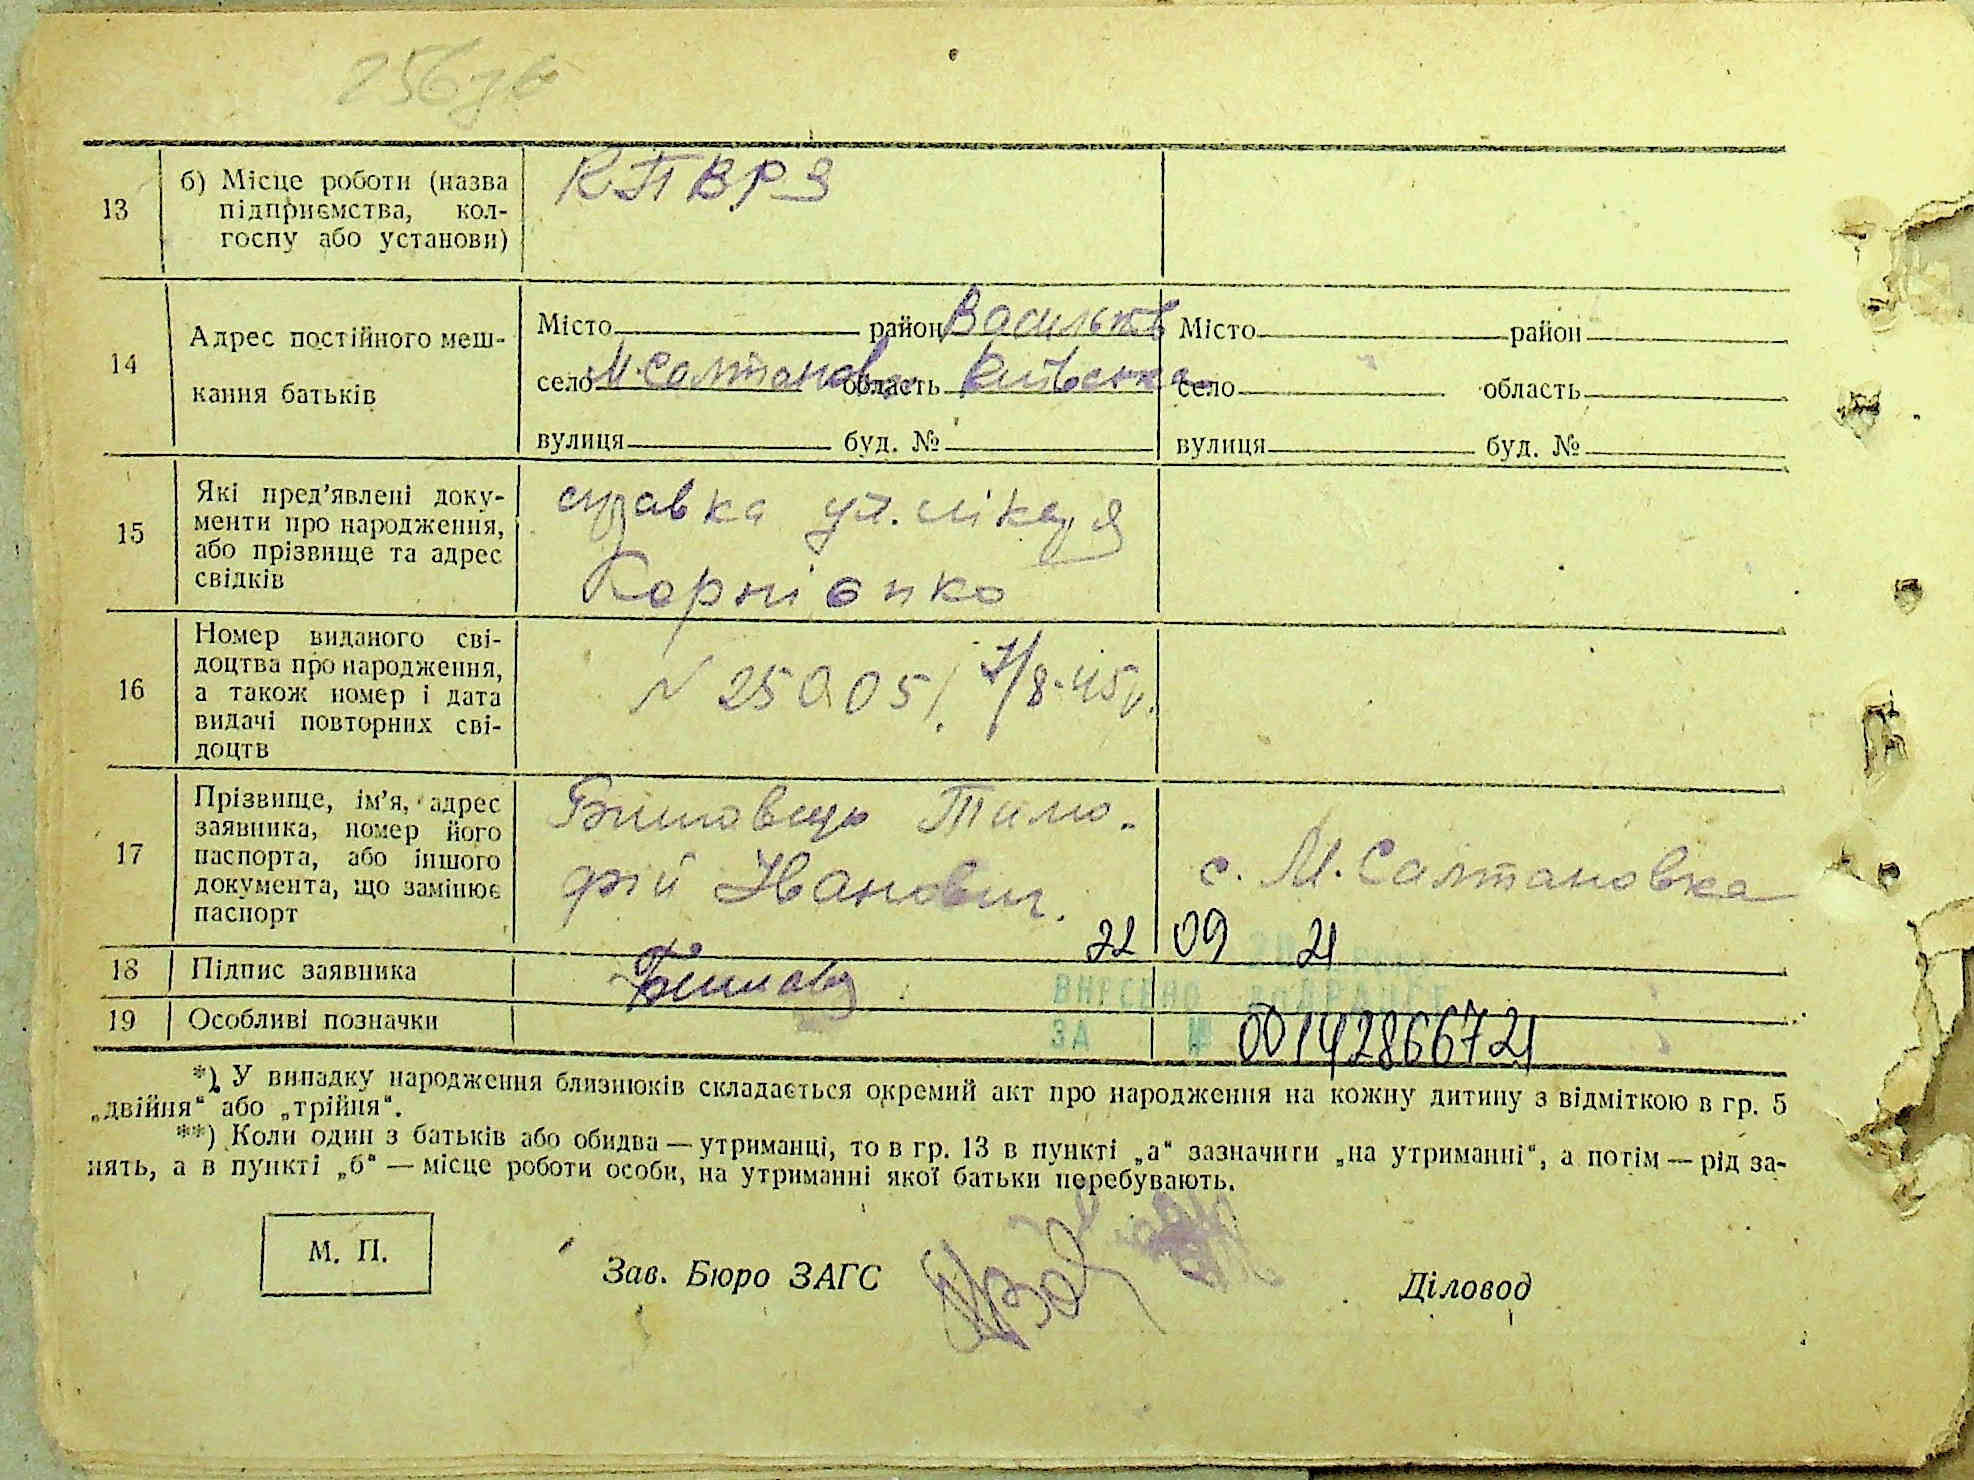 256зв
13
б) Місце роботи (назва
підприємства, кол-
госпу або установи)
КПВРЗ
14
Адрес постійного меш-
кання батьків
Місто район Васильків
село М. Салтановка область Київська
вулиця буд. №
Місто район
село область
вулиця буд. №
15
Які пред'явлені доку-
менти про народження,
або прізвище та адрес
свідків
справка уч. лікаря
Корнієнко
16
Номер виданого сві-
доцтва про народження,
а також номер і дата
видачі повторних сві-
доцтв
N 25005/. 7/8-45р.
17
Прізвище, ім'я, адрес
заявника, номер його
паспорта, або іншого
документа, що замінює
паспорт
Тимо-
фій Іванович.
с. М. Салтановка
22 09 21
18
Підпис заявника
ВНЕСЕНО
19
Особливі позначки
ЗА № 00142866721
*) У випадку народження близнюків складається окремий акт про народження на кожну дитину з відміткою в гр. 5
„двійня“ або „трійня“.
**) Коли один з батьків або обидва — утриманці, то в гр. 13 в пункті „а“ зазначити „на утриманні“, а потім — рід за-
нять, а в пункті „б“ — місце роботи особи, на утриманні якої батьки перебувають.
М. П.
Зав. Бюро ЗАГС
Діловод